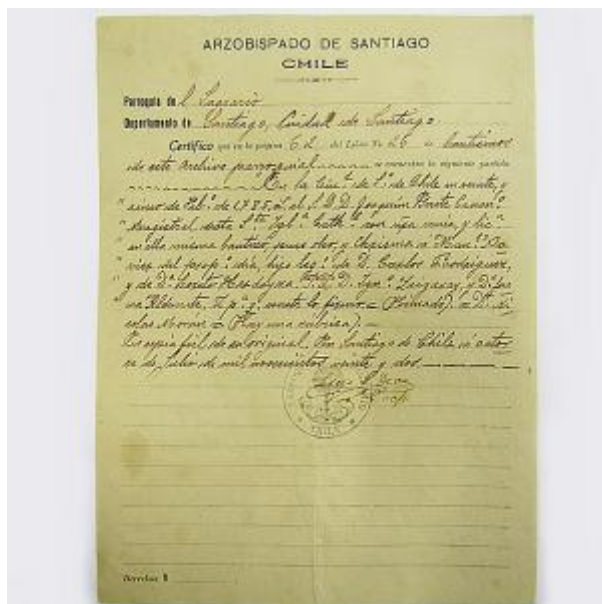 ARZOBISPADO DE SANTIAGO
CHILE
Parroquia de l Sagrario
Departamento de Santiago, Ciudad de Santiago
Certifico que en la página 62 del Libro No 26 de bautismos
de este Archivo parroquial se encuentra la siguiente partida
En la Ciud.d de S.o de Chile en veinte, y
de Feb.o de 1785, el S. D. D. Joaquin
Magistral desta S.ta Igl.a Cath.l con mia, y lic.a
en ella misma bautizó, puso oleo, y chrisma a Man.l Xa
vier del día, hijo leg.o de D. Carlos Rodriguez,
y de D.a Loreto Hordoyza. D. Ign.o y D.a
na Aldunate, y conste lo firmo = (Firmado). = D.r Ni
colas Moran = (Hay una rubrica). =
Es copia fiel de su original. En Santiago de Chile a cator
ce de Julio de mil novecientos veinte y dos
CHILE
Derechos $